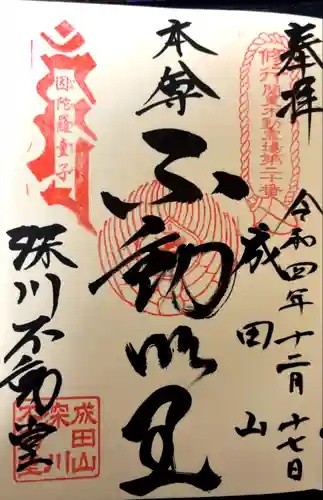 奉拝
令和四年十二月十七日
修行
関東不動霊場第二十番
成田山
本尊
不動明王
因陀羅童子
深川不動堂
成田山
深川
不動堂